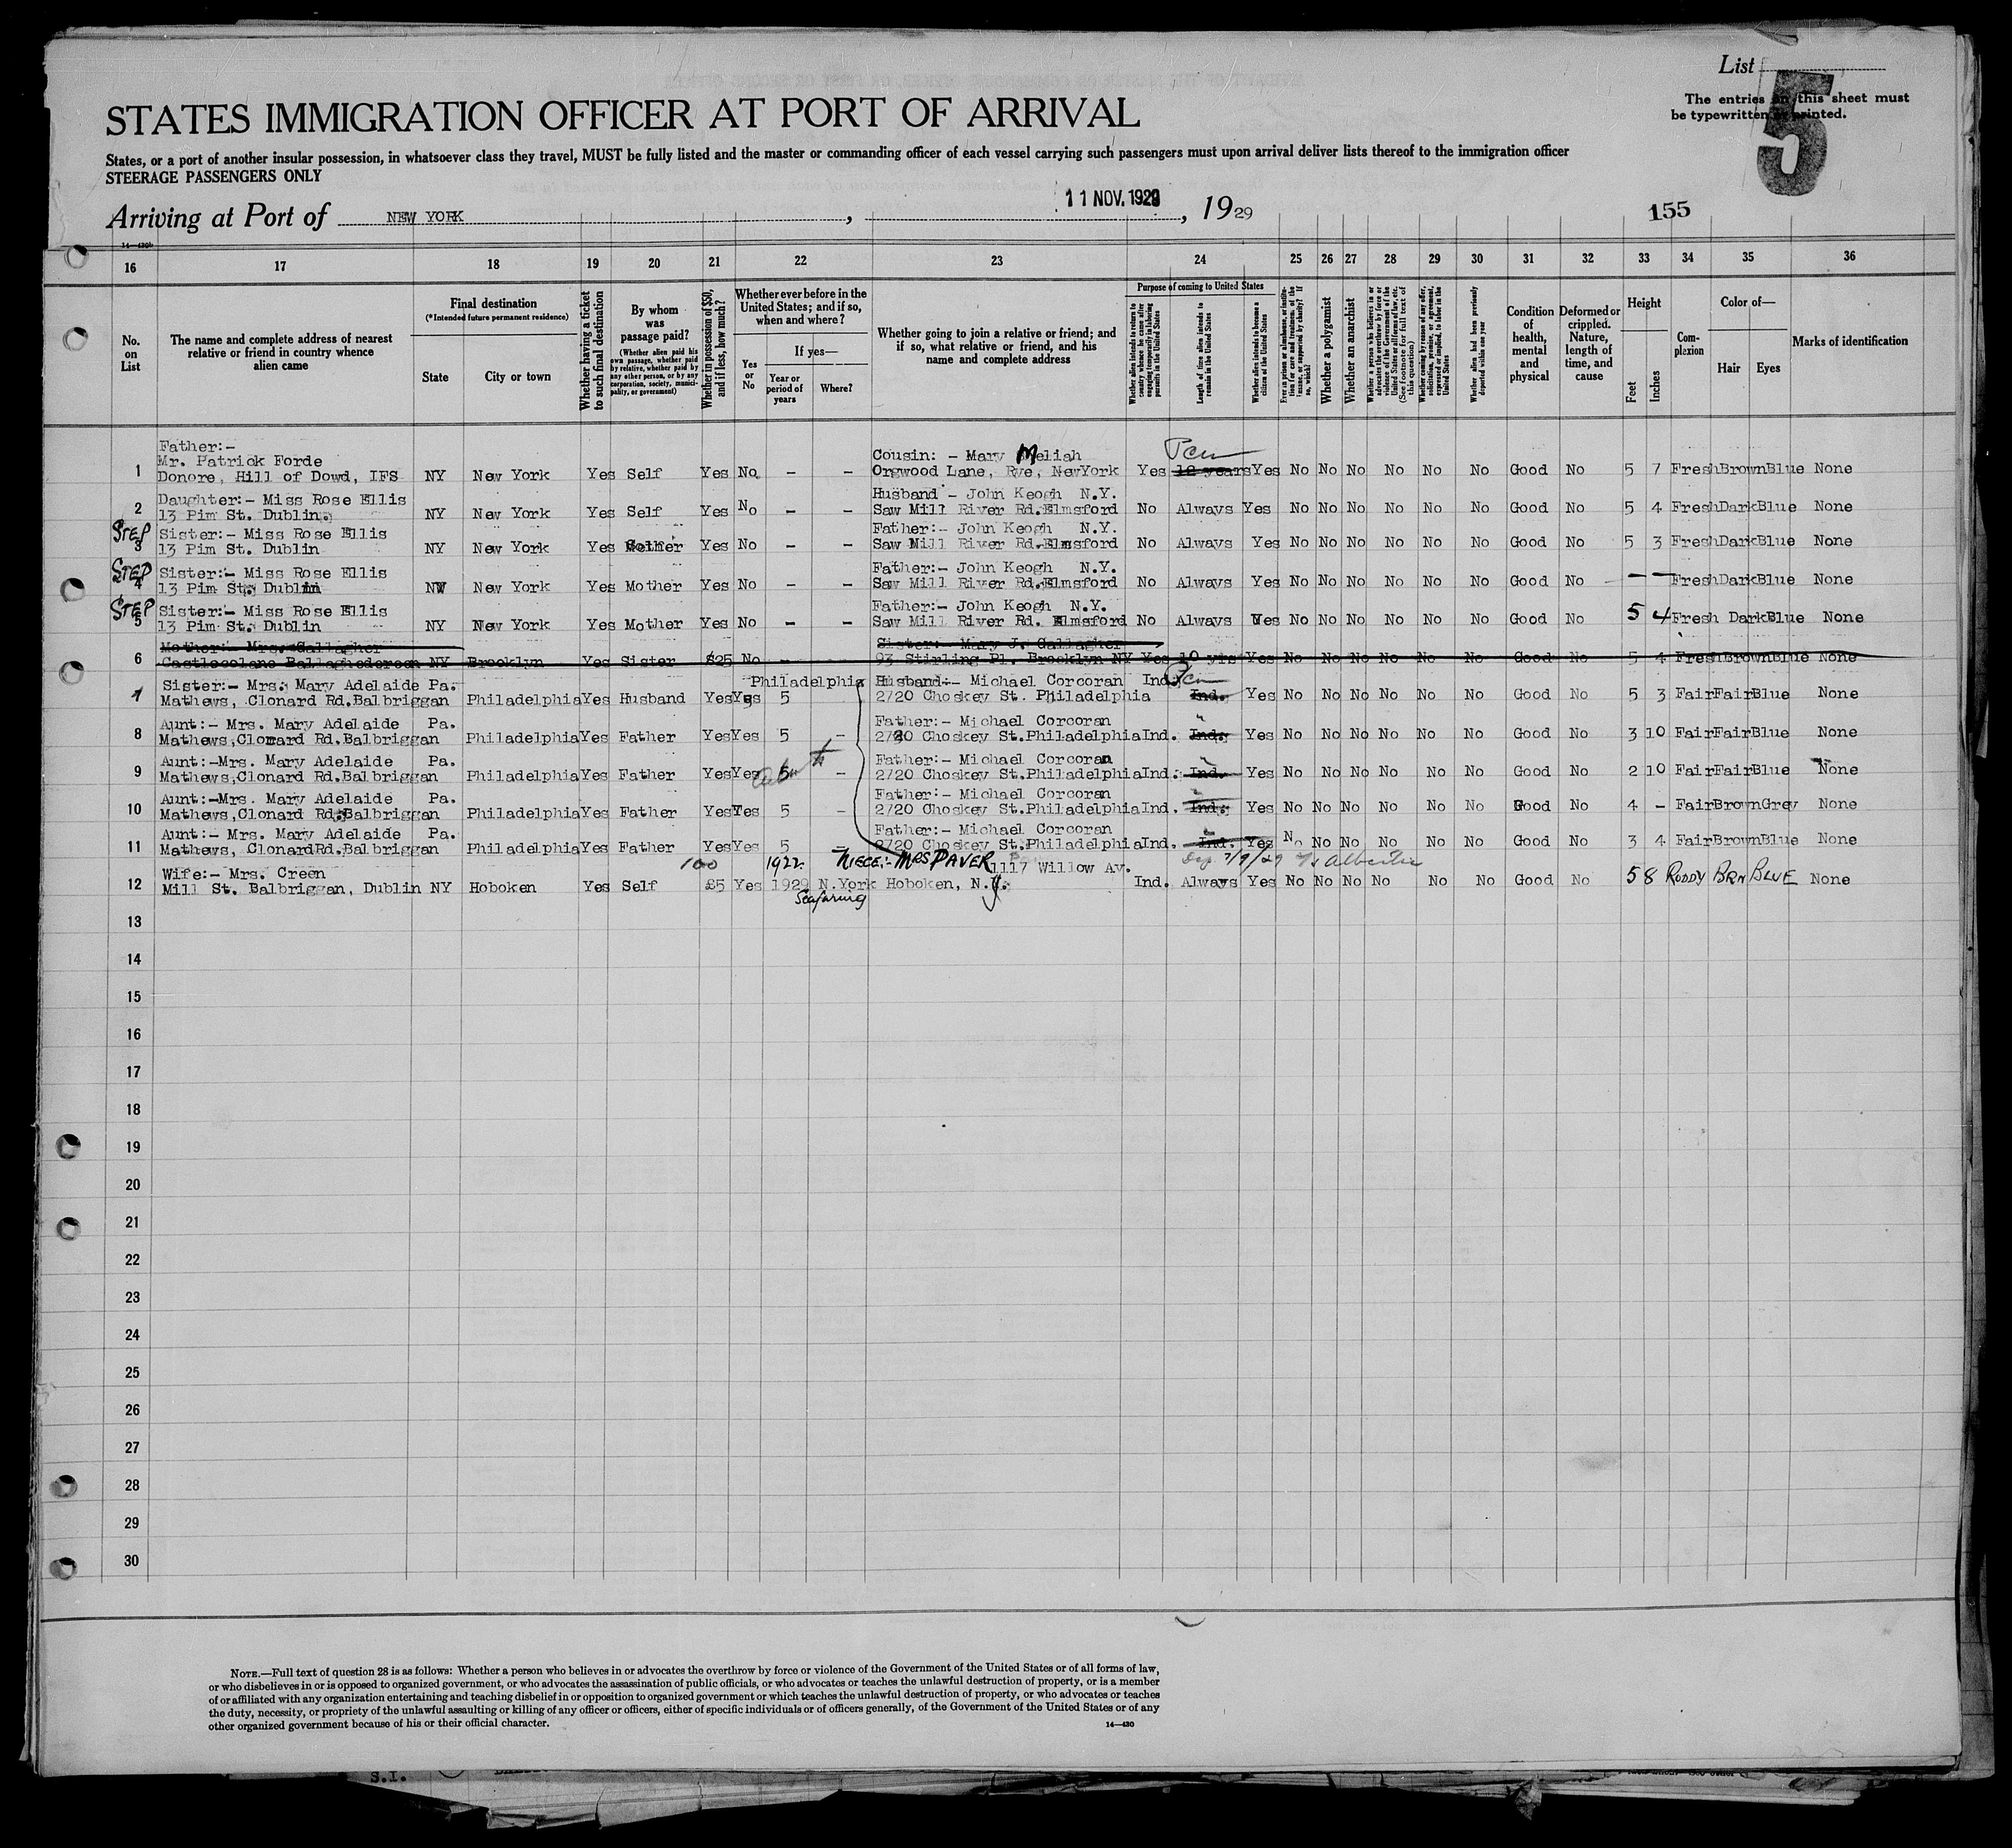 List
5
The entries on this sheet must
be typewritten or printed.
STATES IMMIGRATION OFFICER AT PORT OF ARRIVAL
States, or a port of another insular possession, in whatsoever class they travel, MUST be fully listed and the master or commanding officer of each vessel carrying such passengers must upon arrival deliver lists thereof to the immigration officer
STEERAGE PASSENGERS ONLY
Arriving at Port of NEW YORK , 11 NOV. 1929 , 1929
155
14—430b
16 17 18 19 20 21 22 23 24 25 26 27 28 29 30 31 32 33 34 35 36
No. on List
The name and complete address of nearest relative or friend in country whence alien came
Final destination
(*Intended future permanent residence)
State
City or town
Whether having a ticket to such final destination
By whom was passage paid?
(Whether alien paid his own passage, whether paid by relative, whether paid by any other person, or by any corporation, society, municipality, or government)
Whether in possession of $50, and if less, how much?
Whether ever before in the United States; and if so, when and where?
Yes or No
If yes—
Year or period of years
Where?
Whether going to join a relative or friend; and if so, what relative or friend, and his name and complete address
Purpose of coming to United States
Whether alien intends to return to country whence he came after engaging temporarily in laboring pursuits in the United States
Length of time alien intends to remain in the United States
Whether alien intends to become a citizen of the United States
Ever in prison or almshouse, or institution for care and treatment of the insane, or supported by charity? If so, which?
Whether a polygamist
Whether an anarchist
Whether a person who believes in or advocates the overthrow by force or violence of the Government of the United States or all forms of law, etc. (See footnote for full text of this question)
Whether coming by reason of any offer, solicitation, promise, or agreement, expressed or implied, to labor in the United States
Whether alien had been previously deported within one year
Condition of health, mental and physical
Deformed or crippled. Nature, length of time, and cause
Height
Feet
Inches
Complexion
Color of—
Hair
Eyes
Marks of identification
Father:- Cousin: - Mary Meliah Pem
1 Mr. Patrick Forde
Donore, Hill of Dowd, IFS NY New York Yes Self Yes No - - Orgwood Lane, Rye, NewYork Yes 12 years Yes No No No No No No Good No 5 7 Fresh Brown Blue None
Daughter:- Miss Rose Ellis Husband - John Keogh N.Y.
2 13 Pim St. Dublin. NY New York Yes Self Yes No - - Saw Mill River Rd.Elmsford No Always Yes No No No No No No Good No 5 4 Fresh Dark Blue None
STEP Sister:- Miss Rose Ellis Father:- John Keogh N.Y.
3 13 Pim St. Dublin NY New York Yes Mother Yes No - - Saw Mill River Rd.Elmsford No Always Yes No No No No No No Good No 5 3 Fresh Dark Blue None
STEP Sister:- Miss Rose Ellis Father:- John Keogh N.Y.
4 13 Pim St. Dublin NY New York Yes Mother Yes No - - Saw Mill River Rd.Elmsford No Always Yes No No No No No No Good No - - Fresh Dark Blue None
STEP Sister:- Miss Rose Ellis Father:- John Keogh N.Y.
5 13 Pim St. Dublin NY New York Yes Mother Yes No - - Saw Mill River Rd. Elmsford No Always Yes No No No No No No Good No 5 4 Fresh Dark Blue None
Mother:- Mrs. Gallagher Sister:- Mary J. Gallagher
6 Castlecolane Ballaghedereen NY Brooklyn Yes Sister $25 No - 93 Stirling Pl. Brooklyn NY Yes 10 yrs Yes No No No No No No Good No 5 4 Fresh Brown Blue None
Sister:- Mrs. Mary Adelaide Pa. Philadelphia Husband:- Michael Corcoran Ind. Pem
7 Mathews, Clonard Rd.Balbriggan Philadelphia Yes Husband Yes Yes 5 2720 Choskey St. Philadelphia Ind. Yes No No No No No No Good No 5 3 Fair Fair Blue None
Aunt:- Mrs. Mary Adelaide Pa. Father:- Michael Corcoran "
8 Mathews,Clonard Rd.Balbriggan Philadelphia Yes Father Yes Yes 5 - 2720 Choskey St.Philadelphia Ind. Ind. Yes No No No No No No Good No 3 10 Fair Fair Blue None
Aunt:-Mrs. Mary Adelaide Pa. Father:- Michael Corcoran "
9 Mathews,Clonard Rd.Balbriggan Philadelphia Yes Father Yes Yes 5 - 2720 Choskey St.Philadelphia Ind. Ind. Yes No No No No No No Good No 2 10 Fair Fair Blue None
Aunt:-Mrs. Mary Adelaide Pa. Father:- Michael Corcoran "
10 Mathews,Clonard Rd.Balbriggan Philadelphia Yes Father Yes Yes 5 - 2720 Choskey St.Philadelphia Ind. Ind. Yes No No No No No No Good No 4 - Fair Brown Grey None
Aunt:- Mrs. Mary Adelaide Pa. Father:- Michael Corcoran "
11 Mathews, ClonardRd.Balbriggan Philadelphia Yes Father Yes Yes 5 - 2720 Choskey St.Philadelphia Ind. Ind. Yes No No No No No No Good No 3 4 Fair Brown Blue None
Wife:- Mrs. Creen 100 1922 NIECE:- MRS PAVER 1117 Willow Av. Albertic
12 Mill St. Balbriggan, Dublin NY Hoboken Yes Self £5 Yes 1929 N.York Hoboken, N.J. Ind. Always Yes No No No No No No Good No 5 8 RUDDY BRN BLUE None
Seafaring
13
14
15
16
17
18
19
20
21
22
23
24
25
26
27
28
29
30
NOTE.—Full text of question 28 is as follows: Whether a person who believes in or advocates the overthrow by force or violence of the Government of the United States or of all forms of law,
or who disbelieves in or is opposed to organized government, or who advocates the assassination of public officials, or who advocates or teaches the unlawful destruction of property, or is a member
of or affiliated with any organization entertaining and teaching disbelief in or opposition to organized government or which teaches the unlawful destruction of property, or who advocates or teaches
the duty, necessity, or propriety of the unlawful assaulting or killing of any officer or officers, either of specific individuals or of officers generally, of the Government of the United States or of any
other organized government because of his or their official character.
14—430
S.I.